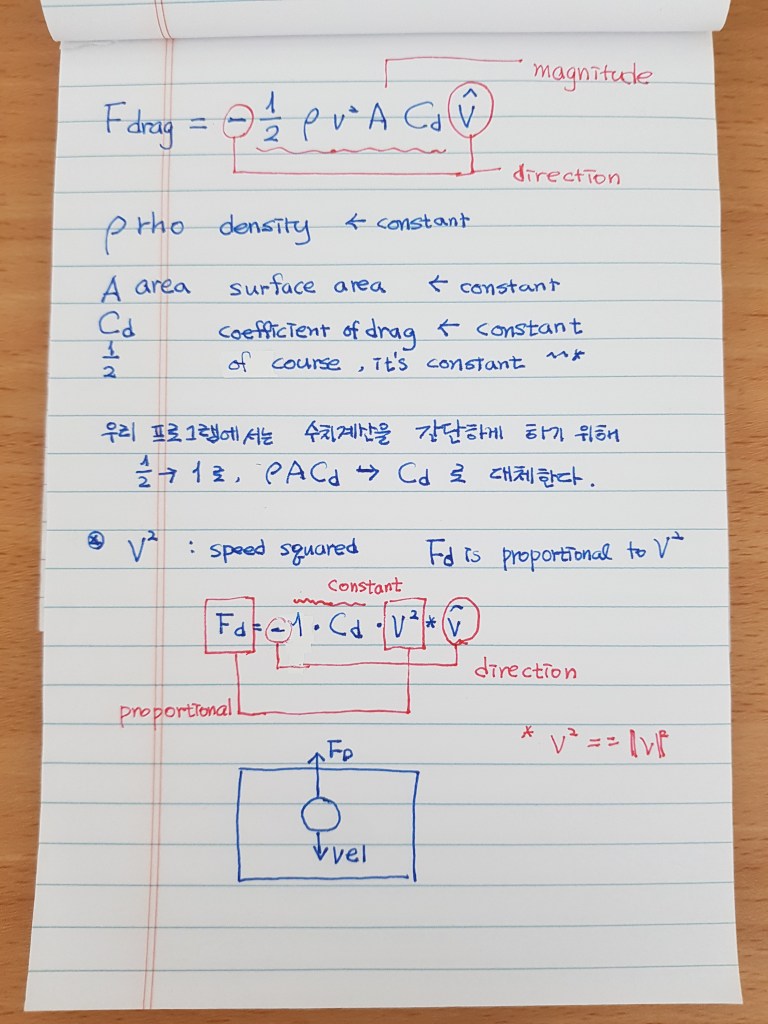 magnitude
F drag = - 1/2 ρ v² A Cd v̂
direction
ρ rho density ← constant
A area surface area ← constant
Cd coefficient of drag ← constant
1/2 of course, it's constant ~~*
우리 프로그램에서는 수치계산을 간단하게 하기 위해
1/2 → 1로, ρACd → Cd 로 대체한다.
⊛ V² : speed squared Fd is proportional to V²
constant
Fd = - 1 · Cd · V² * v̂
direction
proportional
* V² == ‖V‖²
FD
Vel